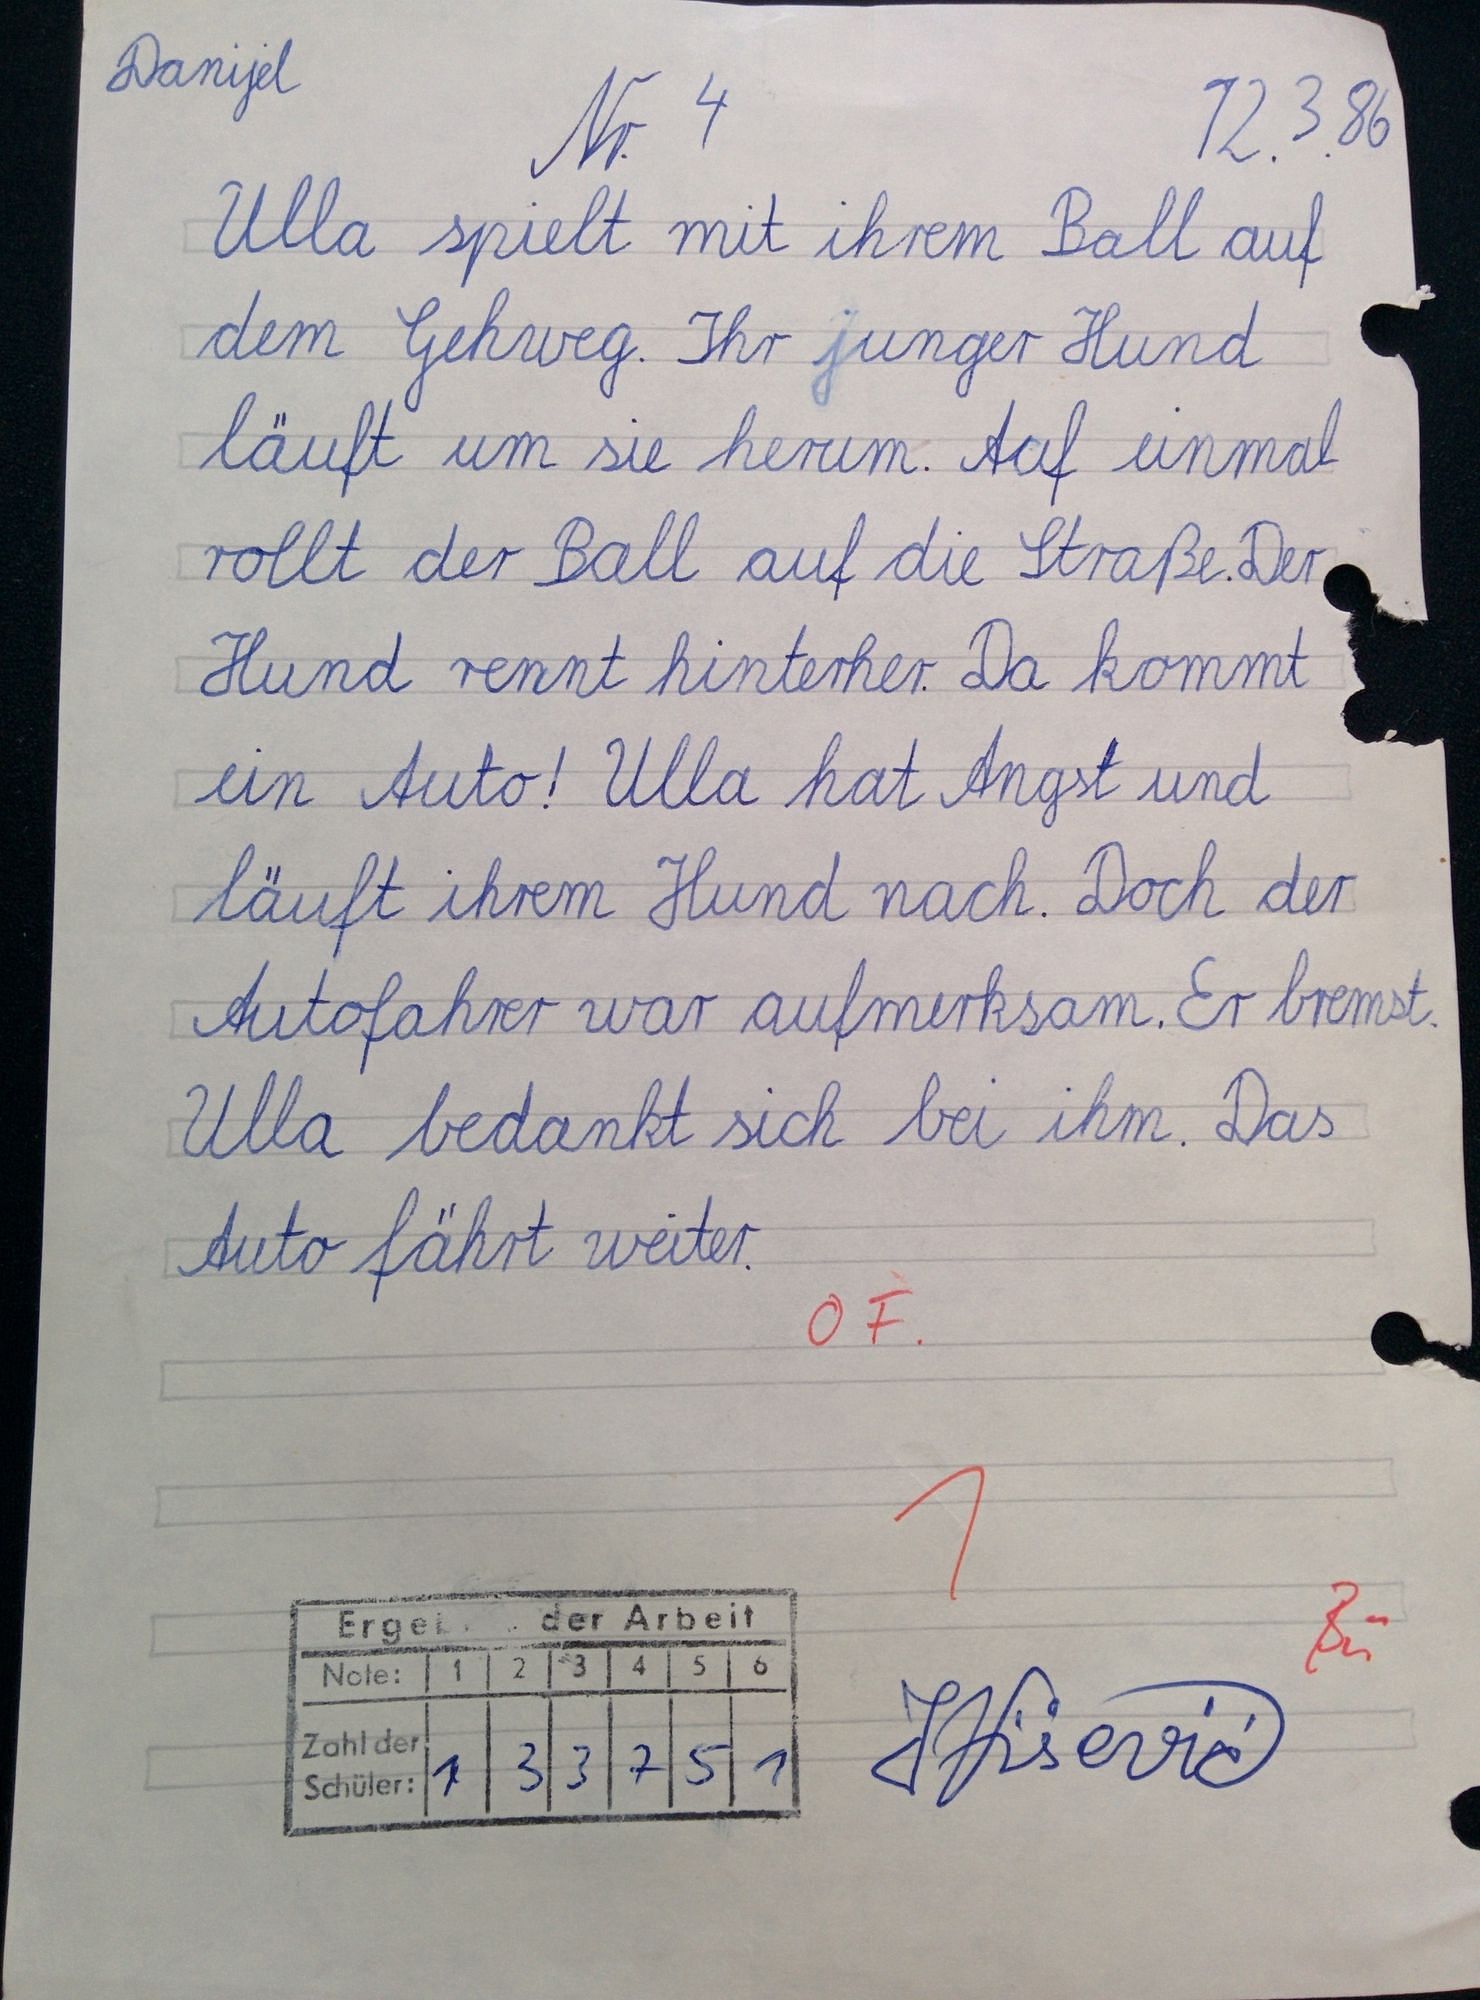 Danijel
Nr. 4
12.3.86
Ulla spielt mit ihrem Ball auf
dem Gehweg. Ihr junger Hund
läuft um sie herum. Auf einmal
rollt der Ball auf die Straße. Der
Hund rennt hinterher. Da kommt
ein Auto! Ulla hat Angst und
läuft ihrem Hund nach. Doch der
Autofahrer war aufmerksam. Er bremst.
Ulla bedankt sich bei ihm. Das
Auto fährt weiter.
0 F.
1
der Arbeit
Note: 1 2 3 4 5 6
Zahl der
Schüler: 1 3 3 7 5 1